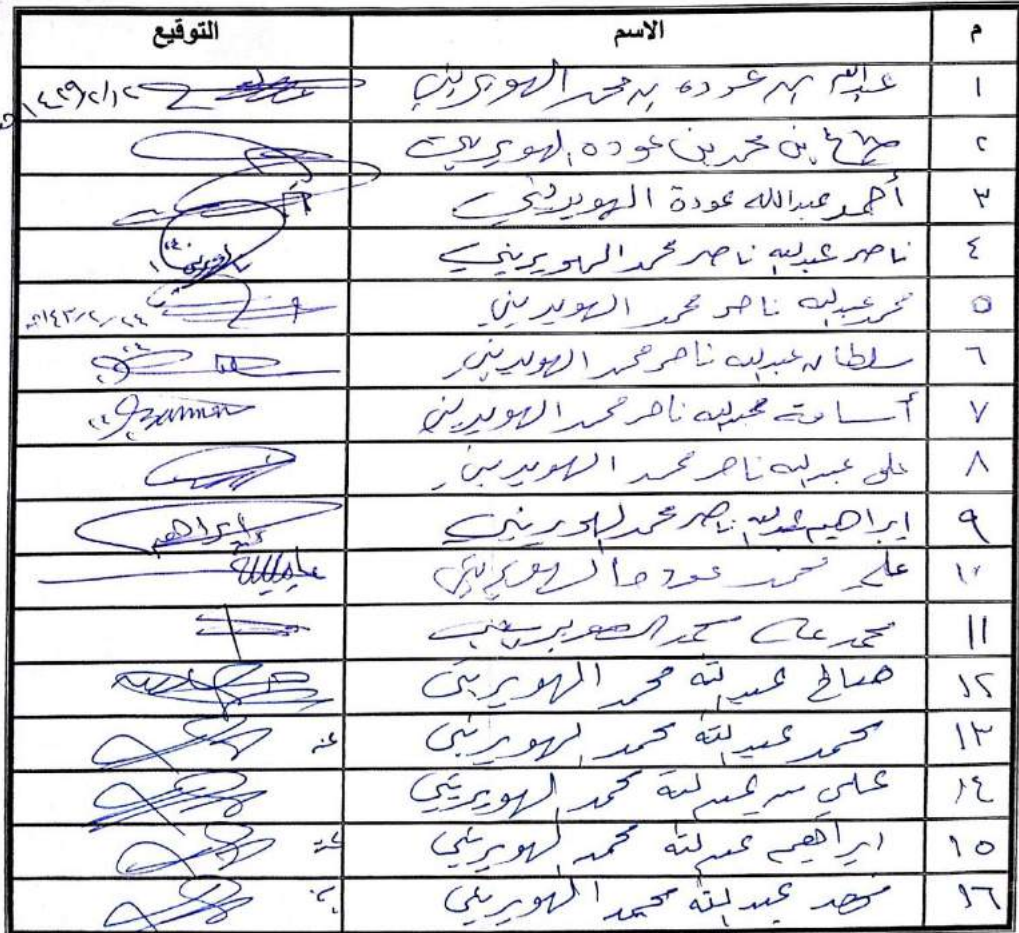 م الاسم التوقيع
١ عبدالله بن عوده بن محمد الهويريني ١٤٣٩/٢/١٢
٢ صالح بن محمد بن عوده الهويريني
٣ أحمد عبدالله عودة الهويريني
٤ ناصر عبدالله ناصر محمد الهويريني
٥ محمد عبدالله ناصر محمد الهويريني
٦ سلطان عبدالله ناصر محمد الهويريني
٧ أسامة عبدالله ناصر محمد الهويريني
٨ علي عبدالله ناصر محمد الهويريني
٩ ابراهيم عبدالله ناصر محمد الهويريني ابراهيم
١٠ علي محمد عوده الهويريني
١١ محمد علي محمد الهويريني
١٢ صالح عبدالله محمد الهويريني
١٣ محمد عبدالله محمد الهويريني عنه
١٤ علي عبدالله محمد الهويريني
١٥ ابراهيم عبدالله محمد الهويريني عنه
١٦ فهد عبدالله محمد الهويريني